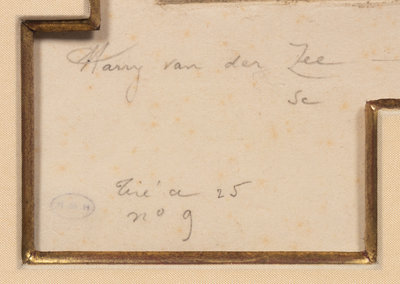 Harry van der Zee
Sc
Tiré a 25
no 9